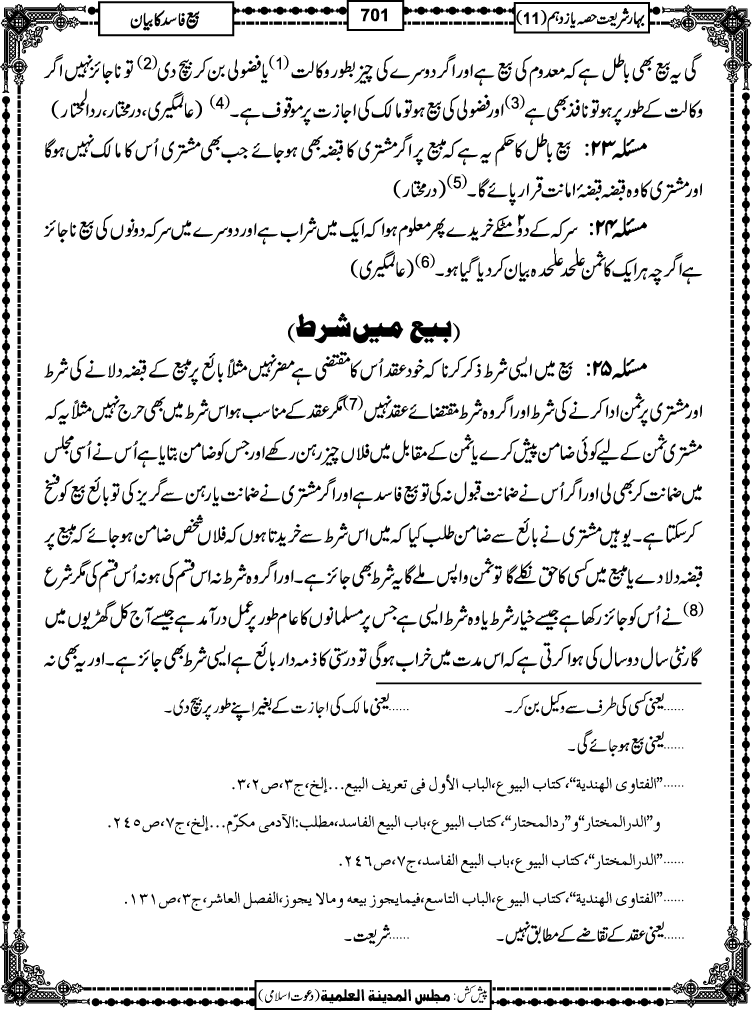 بہار شریعت حصہ یازدہم (11)
701
بیع فاسد کا بیان
گی یہ بیع بھی باطل ہے کہ معدوم کی بیع ہے اور اگر دوسرے کی چیز بطور وکالت (1) یا فضولی بن کر بیچ دی (2) تو ناجائز نہیں اگر
وکالت کے طور پر ہو تو نافذ بھی ہے (3) اور فضولی کی بیع ہو تو مالک کی اجازت پر موقوف ہے۔ (4) (عالمگیری، درمختار، ردالمحتار)
مسئلہ ۲۳: بیع باطل کا حکم یہ ہے کہ مبیع پر اگر مشتری کا قبضہ بھی ہو جائے جب بھی مشتری اُس کا مالک نہیں ہوگا
اور مشتری کا وہ قبضہ قبضۂ امانت قرار پائے گا۔ (5) (درمختار)
مسئلہ ۲۴: سرکہ کے دو۲ مٹکے خریدے پھر معلوم ہوا کہ ایک میں شراب ہے اور دوسرے میں سرکہ دونوں کی بیع ناجائز
ہے اگرچہ ہر ایک کا ثمن علٰحدہ علٰحدہ بیان کر دیا گیا ہو۔ (6) (عالمگیری)
(بیع میں شرط)
مسئلہ ۲۵: بیع میں ایسی شرط ذکر کرنا کہ خود عقد اُس کا مقتضی ہے مضر نہیں مثلاً بائع پر مبیع کے قبضہ دلانے کی شرط
اور مشتری پر ثمن ادا کرنے کی شرط اور اگر وہ شرط مقتضائے عقد نہیں (7) مگر عقد کے مناسب ہو اس شرط میں بھی حرج نہیں مثلاً یہ کہ
مشتری ثمن کے لیے کوئی ضامن پیش کرے یا ثمن کے مقابل میں فلاں چیز رہن رکھے اور جس کو ضامن بتایا ہے اُس نے اُسی مجلس
میں ضمانت کر بھی لی اور اگر اُس نے ضمانت قبول نہ کی تو بیع فاسد ہے اور اگر مشتری نے ضمانت یا رہن سے گریز کی تو بائع بیع کو فسخ
کرسکتا ہے۔ یوہیں مشتری نے بائع سے ضامن طلب کیا کہ میں اس شرط سے خریدتا ہوں کہ فلاں شخص ضامن ہو جائے کہ مبیع پر
قبضہ دلا دے یا مبیع میں کسی کا حق نکلے گا تو ثمن واپس ملے گا یہ شرط بھی جائز ہے۔ اور اگر وہ شرط نہ اس قسم کی ہو نہ اُس قسم کی مگر شرع
(8) نے اُس کو جائز رکھا ہے جیسے خیار شرط یا وہ شرط ایسی ہے جس پر مسلمانوں کا عام طور پر عمل درآمد ہے جیسے آج کل گھڑیوں میں
گارنٹی سال دو سال کی ہوا کرتی ہے کہ اس مدت میں خراب ہوگی تو درستی کا ذمہ دار بائع ہے ایسی شرط بھی جائز ہے۔ اور یہ بھی نہ
......یعنی کسی کی طرف سے وکیل بن کر۔ ......یعنی مالک کی اجازت کے بغیر اپنے طور پر بیچ دی۔
......یعنی بیع ہو جائے گی۔
......”الفتاوی الھندیۃ“، کتاب البیوع، الباب الأول فی تعریف البیع...إلخ، ج۳، ص۲،۳.
و”الدرالمختار“و”ردالمحتار“، کتاب البیوع، باب البیع الفاسد، مطلب: الآدمی مکرّم...إلخ، ج۷، ص۲٤۵.
......”الدرالمختار“، کتاب البیوع، باب البیع الفاسد، ج۷، ص۲٤٦.
......”الفتاوی الھندیۃ“، کتاب البیوع، الباب التاسع، فیمایجوز بیعہ ومالا یجوز، الفصل العاشر، ج۳، ص۱۳۱.
......یعنی عقد کے تقاضے کے مطابق نہیں۔ ......شریعت۔
پیش کش: مجلس المدینۃ العلمیۃ (دعوت اسلامی)